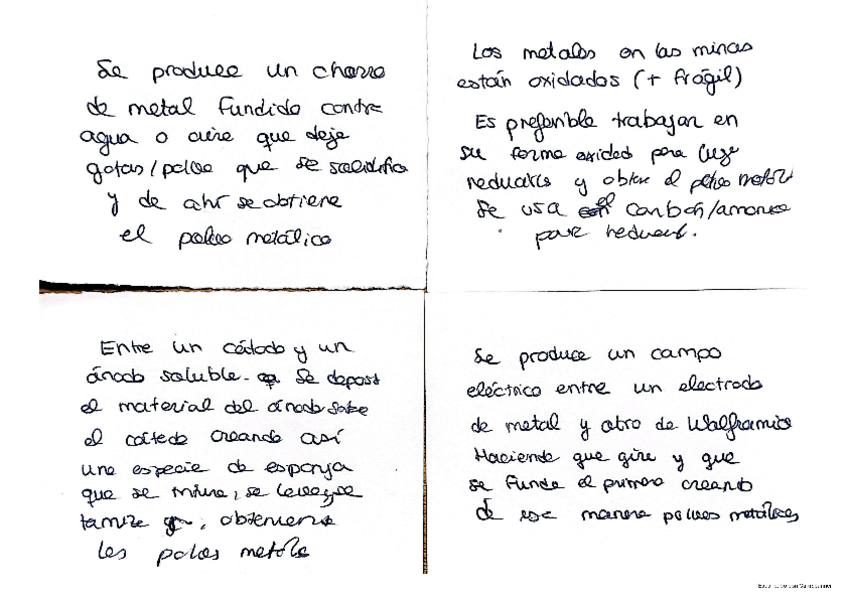 Se produce un chorro
de metal fundido contra
agua o aire que deje
gotas/polvo que se solidifica
y de ahí se obtiene
el polvo metálico
Los metales en las minas
están oxidados (+ frágil)
Es preferible trabajar en
su forma oxidad para luego
reducirlos y obtener el polvo metál
Se usa el carbón/amoniaco
para reducir.
Entre un cátodo y un
ánodo soluble. Se deposit
el material del ánodo sobre
el cátodo creando así
una especie de esponja
que se , se lava, se
tamiza , obteniendo
los polvos
Se produce un campo
eléctrico entre un electrodo
de metal y otro de Wolframio
Haciendo que gire y que
se funda el primero creando
de esa manera polvos metálicos